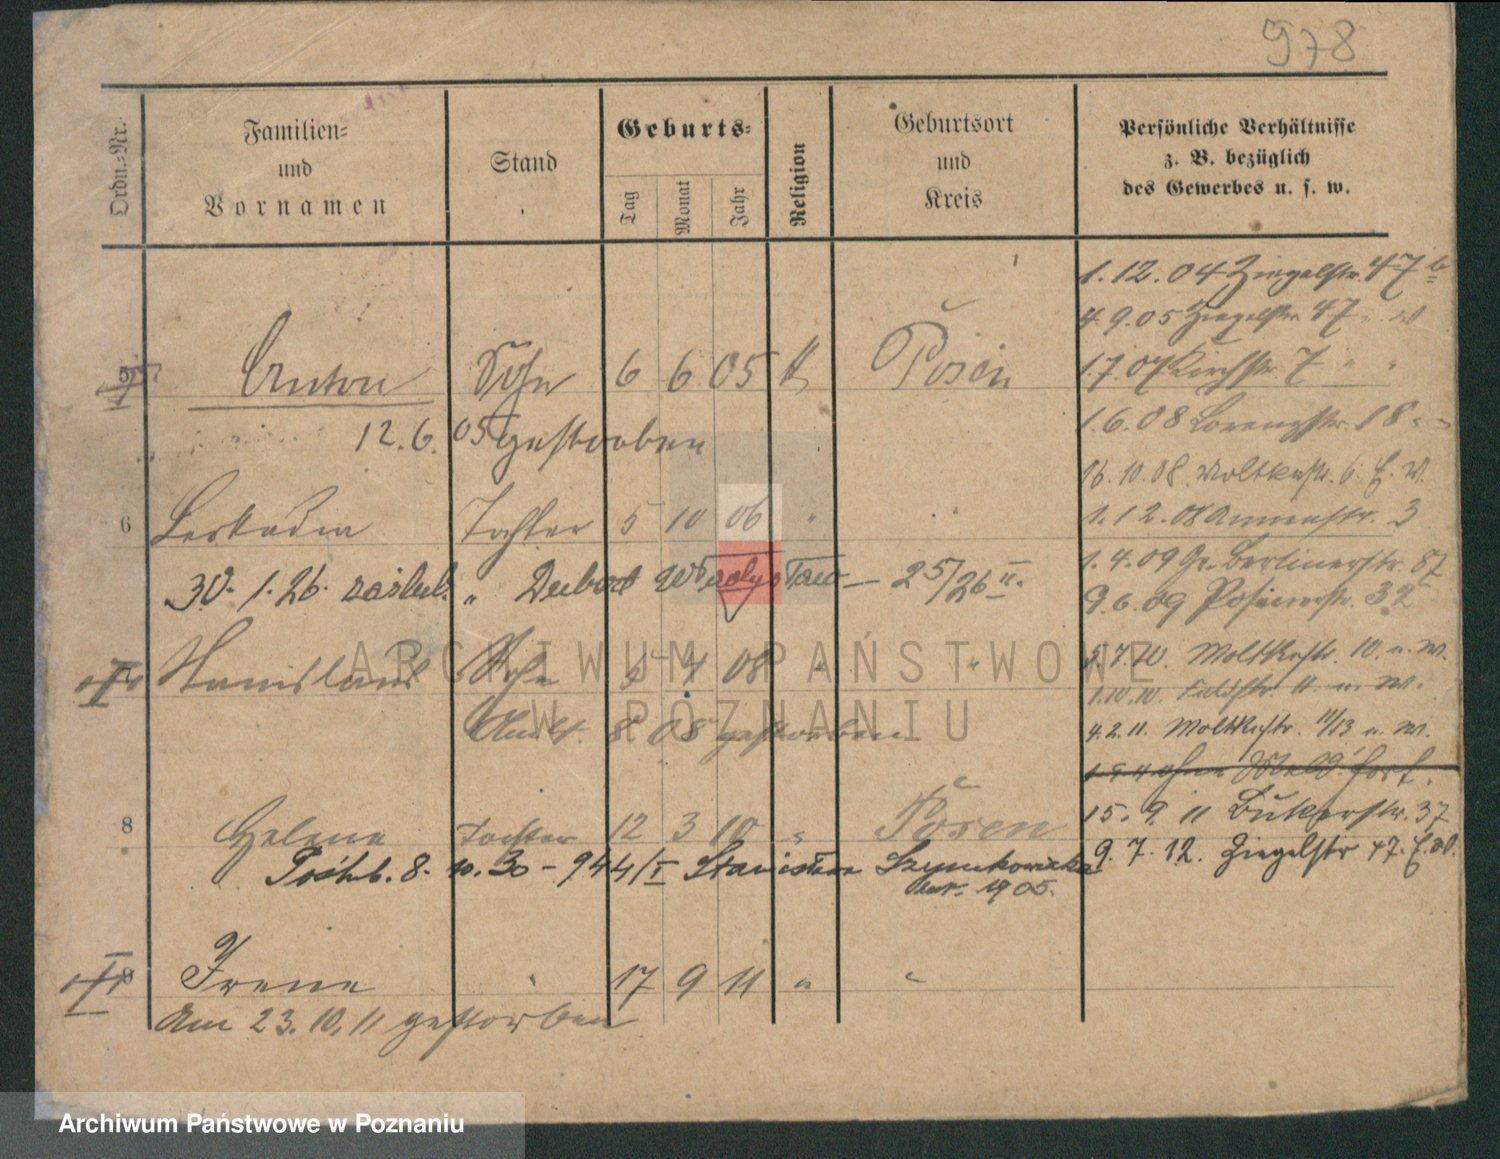 978
Ordn.-Nr.
Familien-
und
Vornamen
Stand
Geburts-
Tag
Monat
Jahr
Religion
Geburtsort
und
Kreis
Persönliche Verhältnisse
z. B. bezüglich
des Gewerbes u. s. w.
1.12.04 Ziegelstr. 47 b
4.9.05 Ziegelstr. 47
5 Anton Sohn 6 6 05 k Posen
1.7.07 Kirchstr. 7 " "
12.6.05 gestorben
1.6.08 Lorenzstr. 18
16.10.08 Moltkestr. 6. E. W.
6 Leokadia Tochter 5 10 06 " "
1.12.08 Annenstr. 3
1.4.09 Gr. Berlinerstr. 87
30.1.26. zaślub. " 25/26 II.
9.6.09 Posenerstr. 32
Stanislaus Sohn 6 4 08 " "
Moltkestr. 10. u. W.
1.10.10. Feldstr. 11 u. W.
8 08 gestorben
4.2.11. Moltkestr. 11/13 u. W.
ohne Meld. fort.
15.9.11 Bukerstr. 37
8 Helene Tochter 12 3 10 " Posen
9.7.12. Ziegelstr 47. E. W.
Poślub. 8. 30-944/I Stanisław
1905.
8 Irene " 17 9 11 " "
Am 23.10.11 gestorben
ARCHIWUM PAŃSTWOWE
W POZNANIU
Archiwum Państwowe w Poznaniu